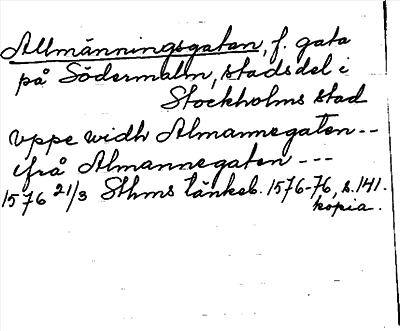 Allmänningsgatan, f. gata
på Södermalm, stadsdel i
Stockholms stad
Vppe widh Almannegaten --
ifrå Almannegaten ---
1576 21/3 Sthms tänkeb. 1576-76, s. 141.
kopia.